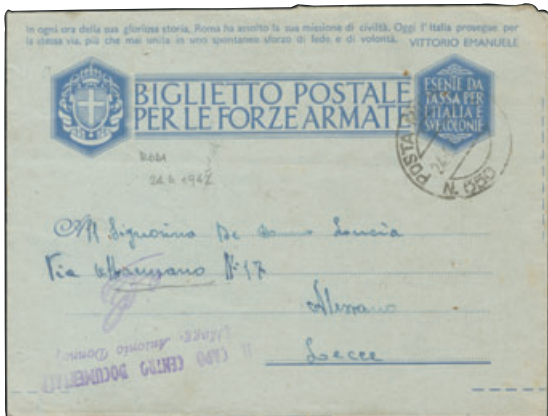 In ogni ora della sua gloriosa storia, Roma ha assolto la sua missione di civiltà. Oggi l'Italia prosegue per
la stessa via, più che mai unita in uno spontaneo sforzo di fede e di volontà. VITTORIO EMANUELE
BIGLIETTO POSTALE
PER LE FORZE ARMATE
ESENTE DA
TASSA PER
L'ITALIA E
SUE COLONIE
POSTA
N. 550
ROMA
All Signorina De Lucia
Via N. 17
Alessano
Lecce
IL CAPO CENTRO DOCUMENTALE
(Magg. Antonio Donno)